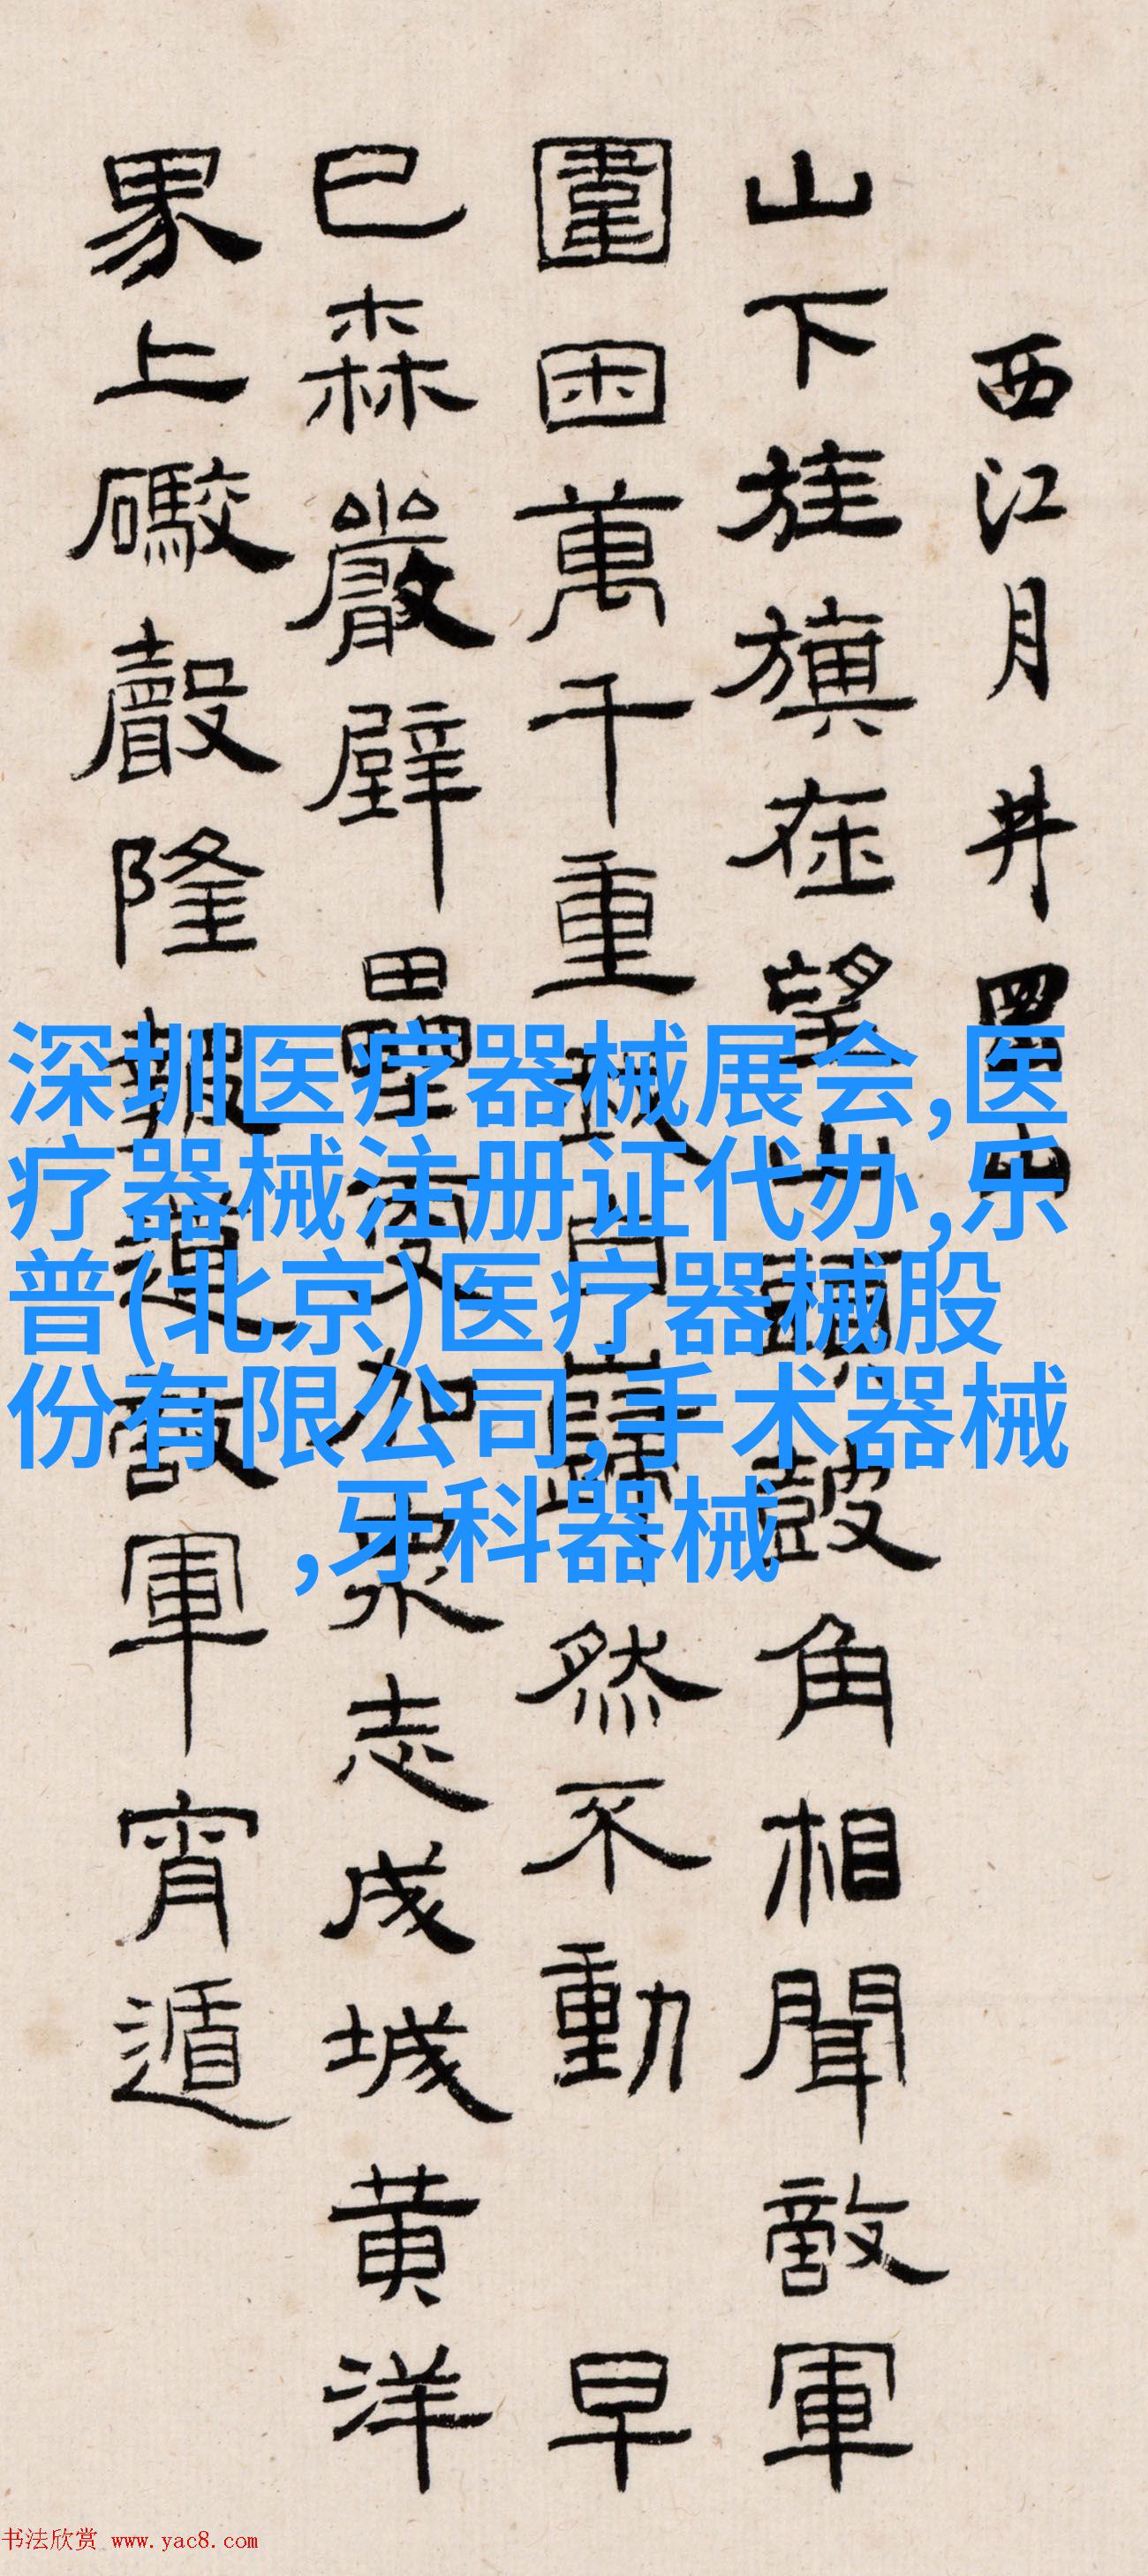 西江月 井岡山
山下旌旗在望山頭鼓角相聞敵軍
圍困萬千重我自巋然不動 早
已森嚴壁壘更加衆志成城黄洋
界上礮聲隆報道敵軍宵遁
深圳医疗器械展会,医
疗器械注册证代办,乐
普(北京)医疗器械股
份有限公司,手术器械
,牙科器械
书法欣赏 www.yac8.com